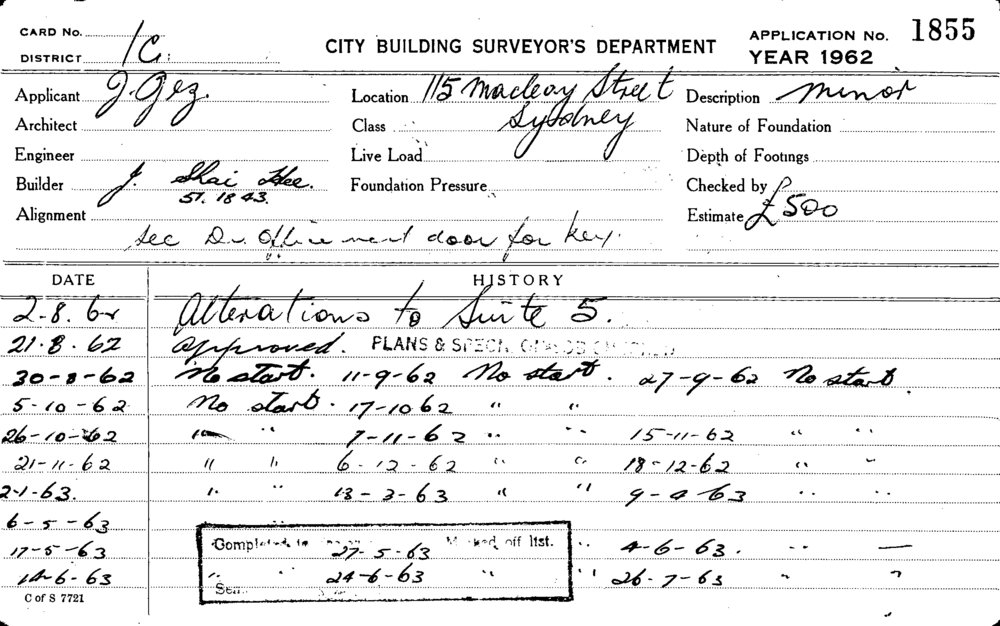 CARD No.
DISTRICT 1C.
CITY BUILDING SURVEYOR'S DEPARTMENT
APPLICATION No. 1855
YEAR 1962
Applicant J. Gez. Location 115 Macleay Street Description minor
Architect Class Sydney Nature of Foundation
Engineer Live Load Depth of Footings
Builder J. Shai Hee. Foundation Pressure Checked by
51.1843.
Alignment Estimate £500
see Dr. Office next door for key.
DATE HISTORY
2-8.62 Alterations to Suite 5.
21.8.62 approved. PLANS &
30-8-62 No start. 11-9-62 No start. 27-9-62 No start.
5-10-62 No start. 17-10 62 " "
26-10-62 " " 7-11-62 " " 15-11-62 " "
21-11-62 " " 6-12-62 " " 18-12-62 " "
2-1-63. " " 13-3-63 " " 9-4-63 " "
6-5-63
17-5-63 27-5-63 off list. " 4-6-63. " —
14-6-63 " " 24-6-63 " " 26-7-63 " "
C of S 7721